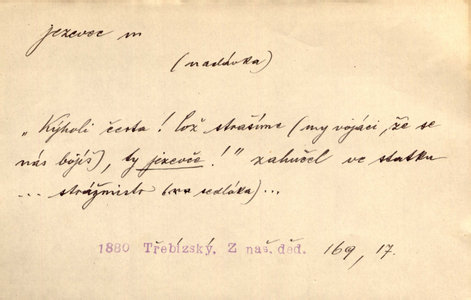 jezevec m
(nadávka)
„Kýholi čerta! Což strašíme (my vojáci, že se
nás bojíš), ty jezevče!" zahučel ve statku
... strážmistr (** sedláka)...
1880 Třebízský, Z naš. děd. 169, 17.